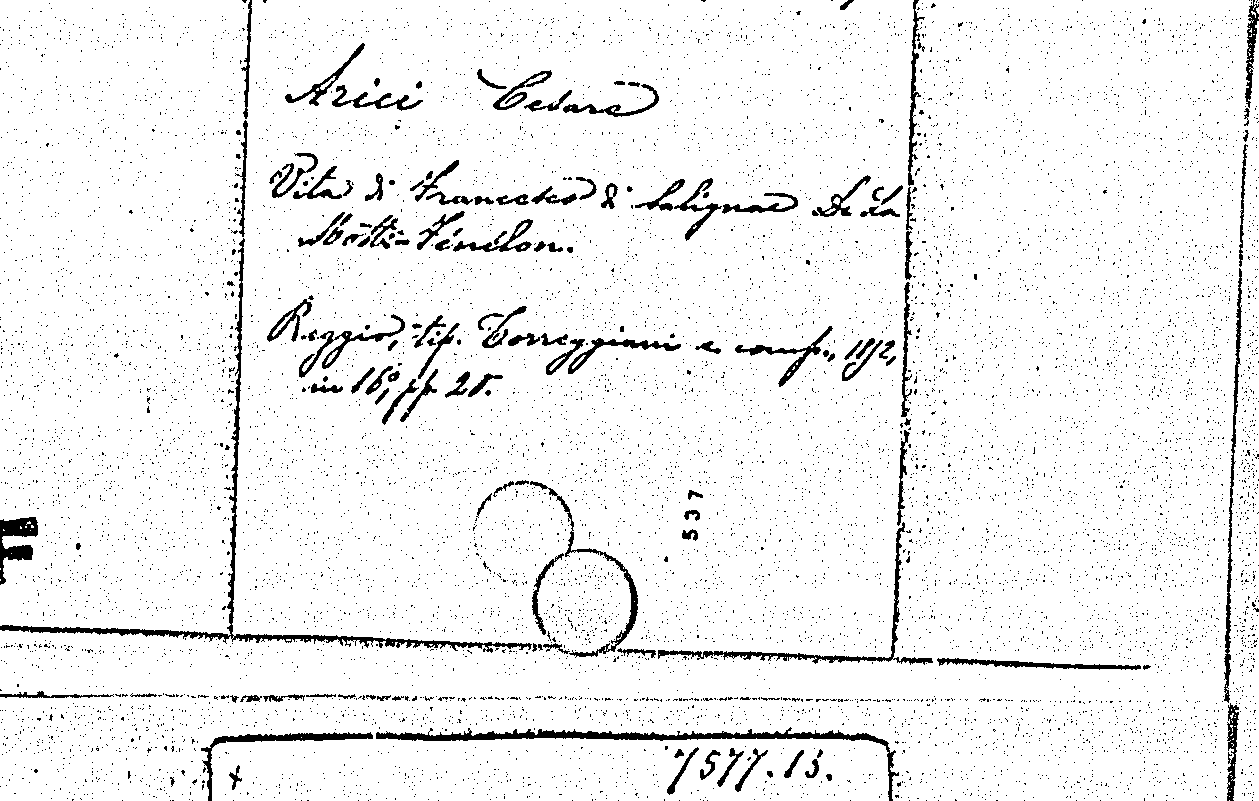 Arici Cesare
Vita di Francesco di Salignac De La
Motte-Fénélon.
Reggio, tip. Torreggiani e comp.,
in 16°, pp.
537
7577.13.